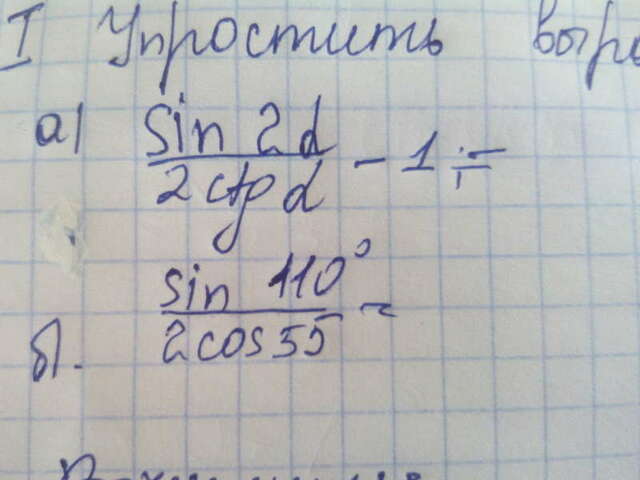 I Упростить выра
а) sin 2α / 2 ctg α - 1 =
б). sin 110° / 2 cos 55 =